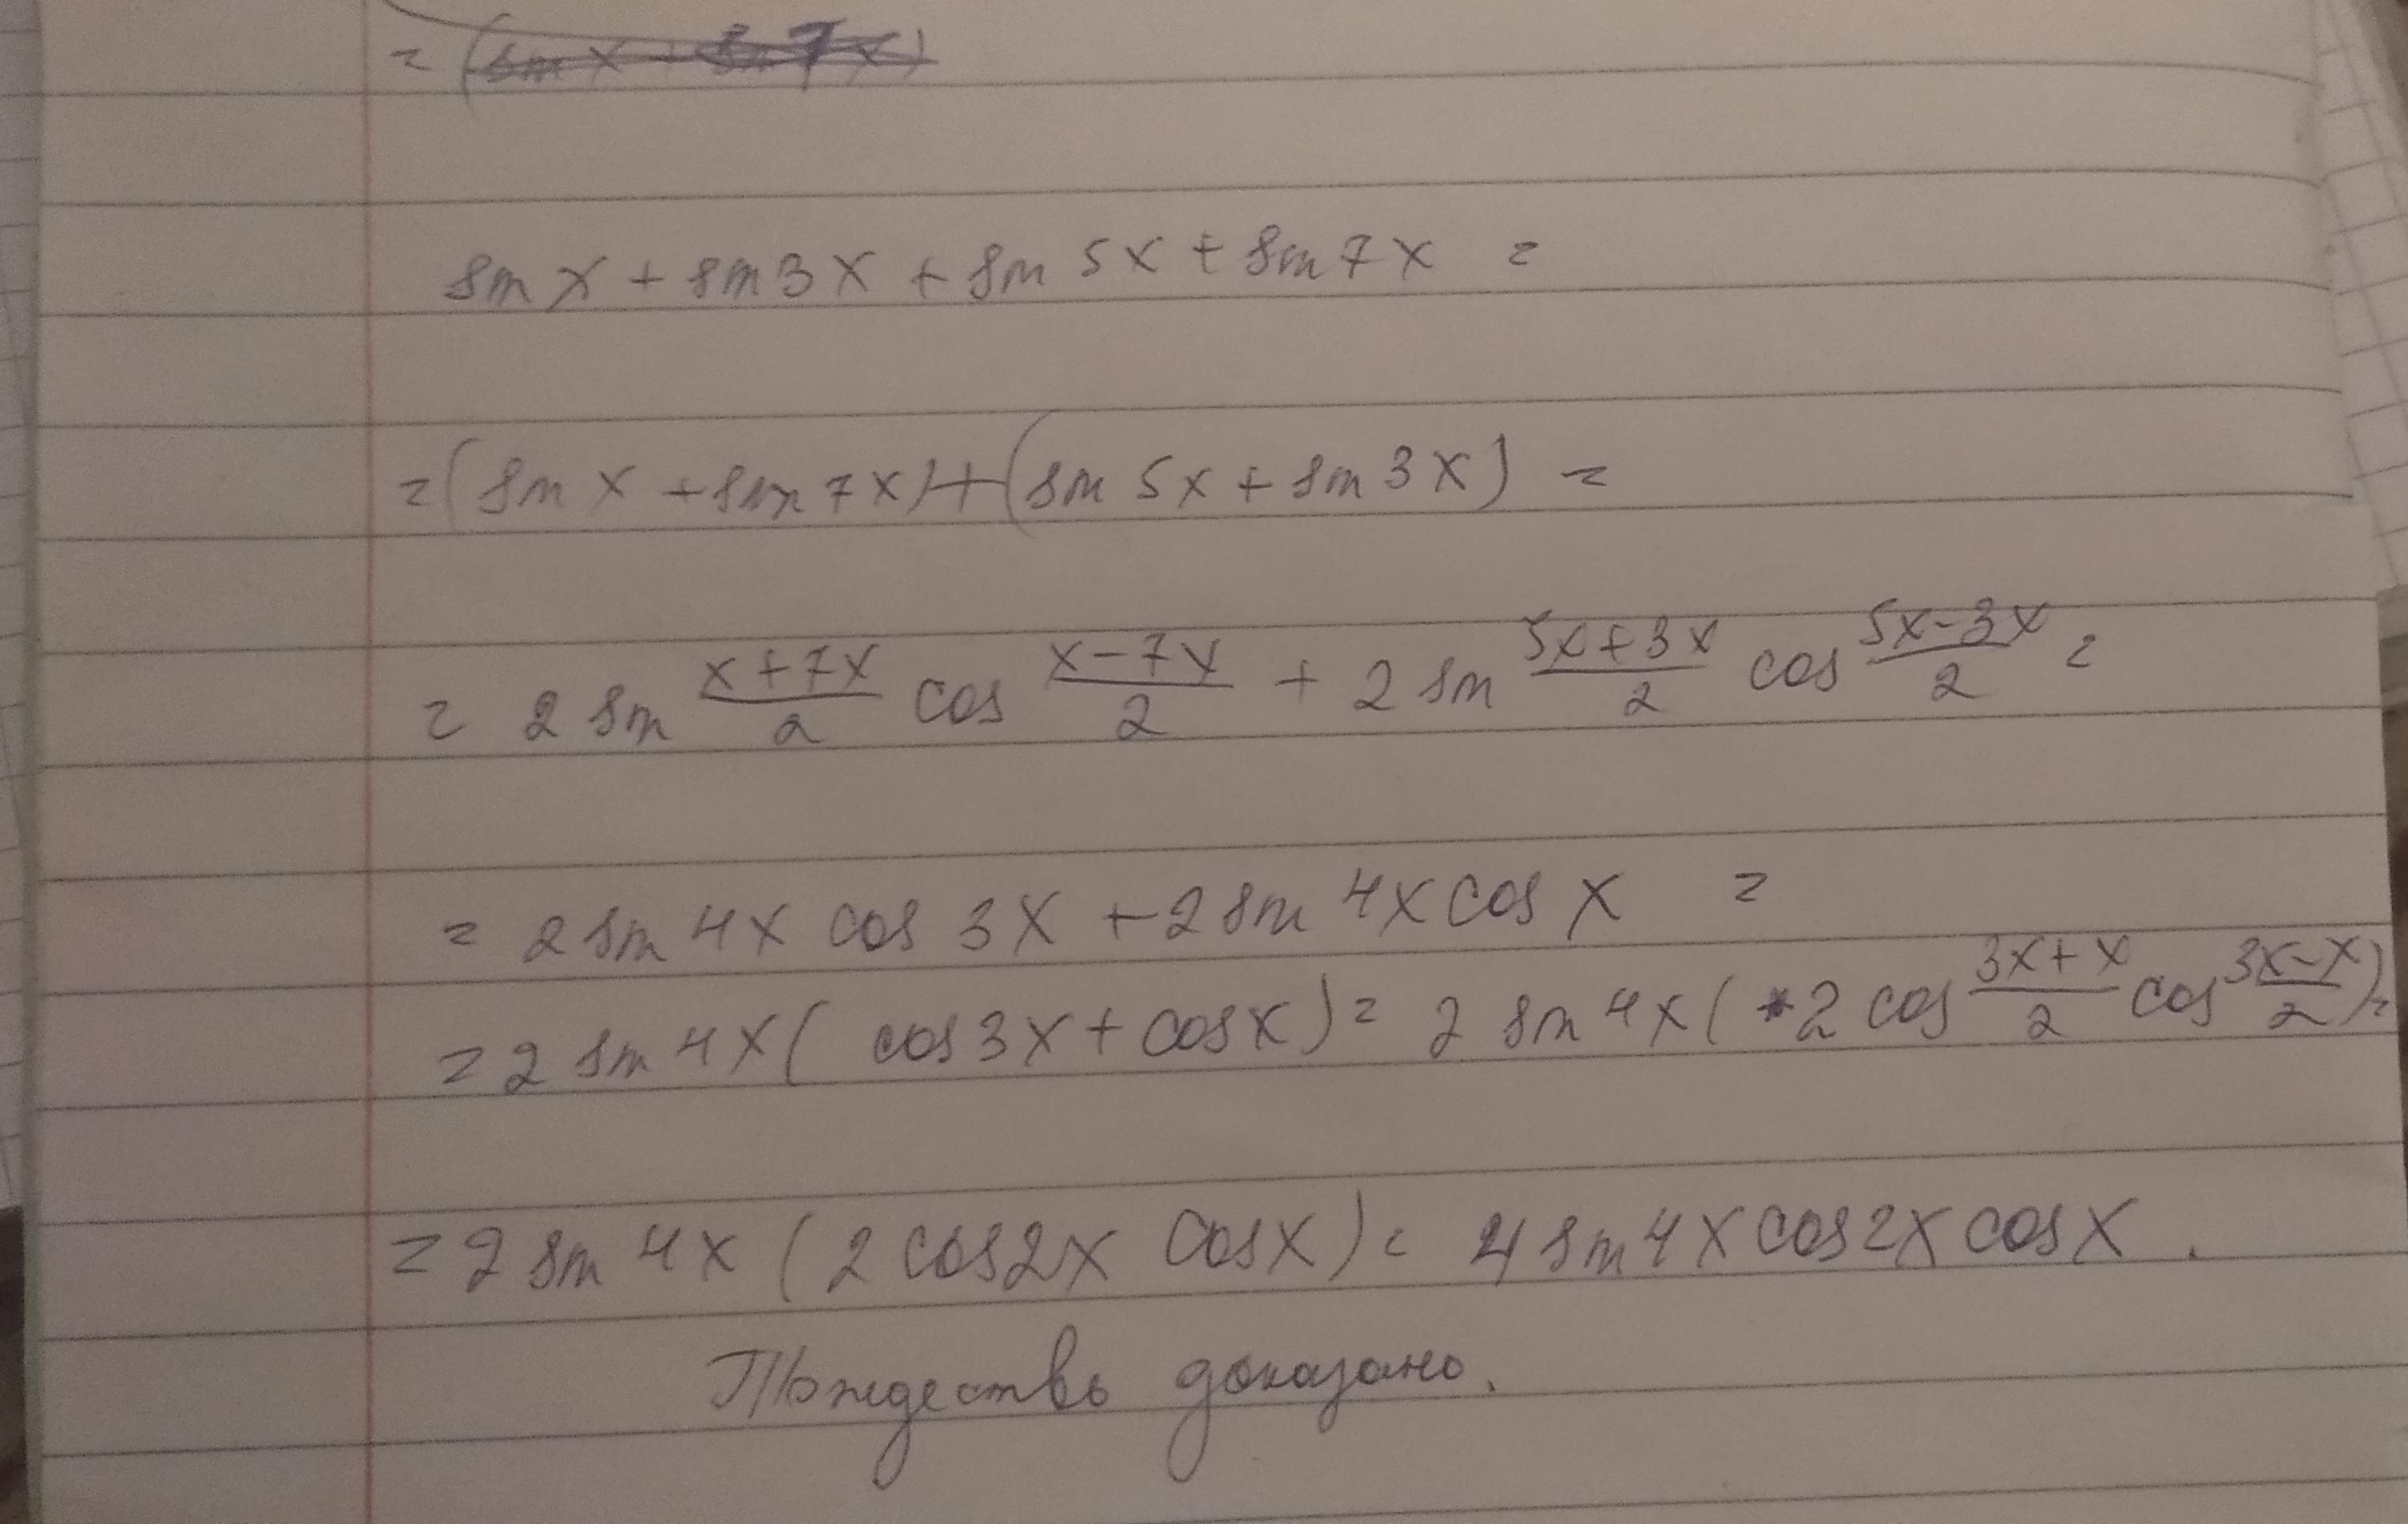 = (sin x + sin 7x)
sin x + sin 3x + sin 5x + sin 7x =
= (sin x + sin 7x) + (sin 5x + sin 3x) =
= 2 sin \frac{x+7x}{2} cos \frac{x-7x}{2} + 2 sin \frac{5x+3x}{2} cos \frac{5x-3x}{2} =
= 2 sin 4x cos 3x + 2 sin 4x cos x =
= 2 sin 4x ( cos 3x + cos x ) = 2 sin 4x ( 2 cos \frac{3x+x}{2} cos \frac{3x-x}{2} ) =
= 2 sin 4x ( 2 cos 2x cos x ) = 4 sin 4x cos 2x cos x .
Тождество доказано.